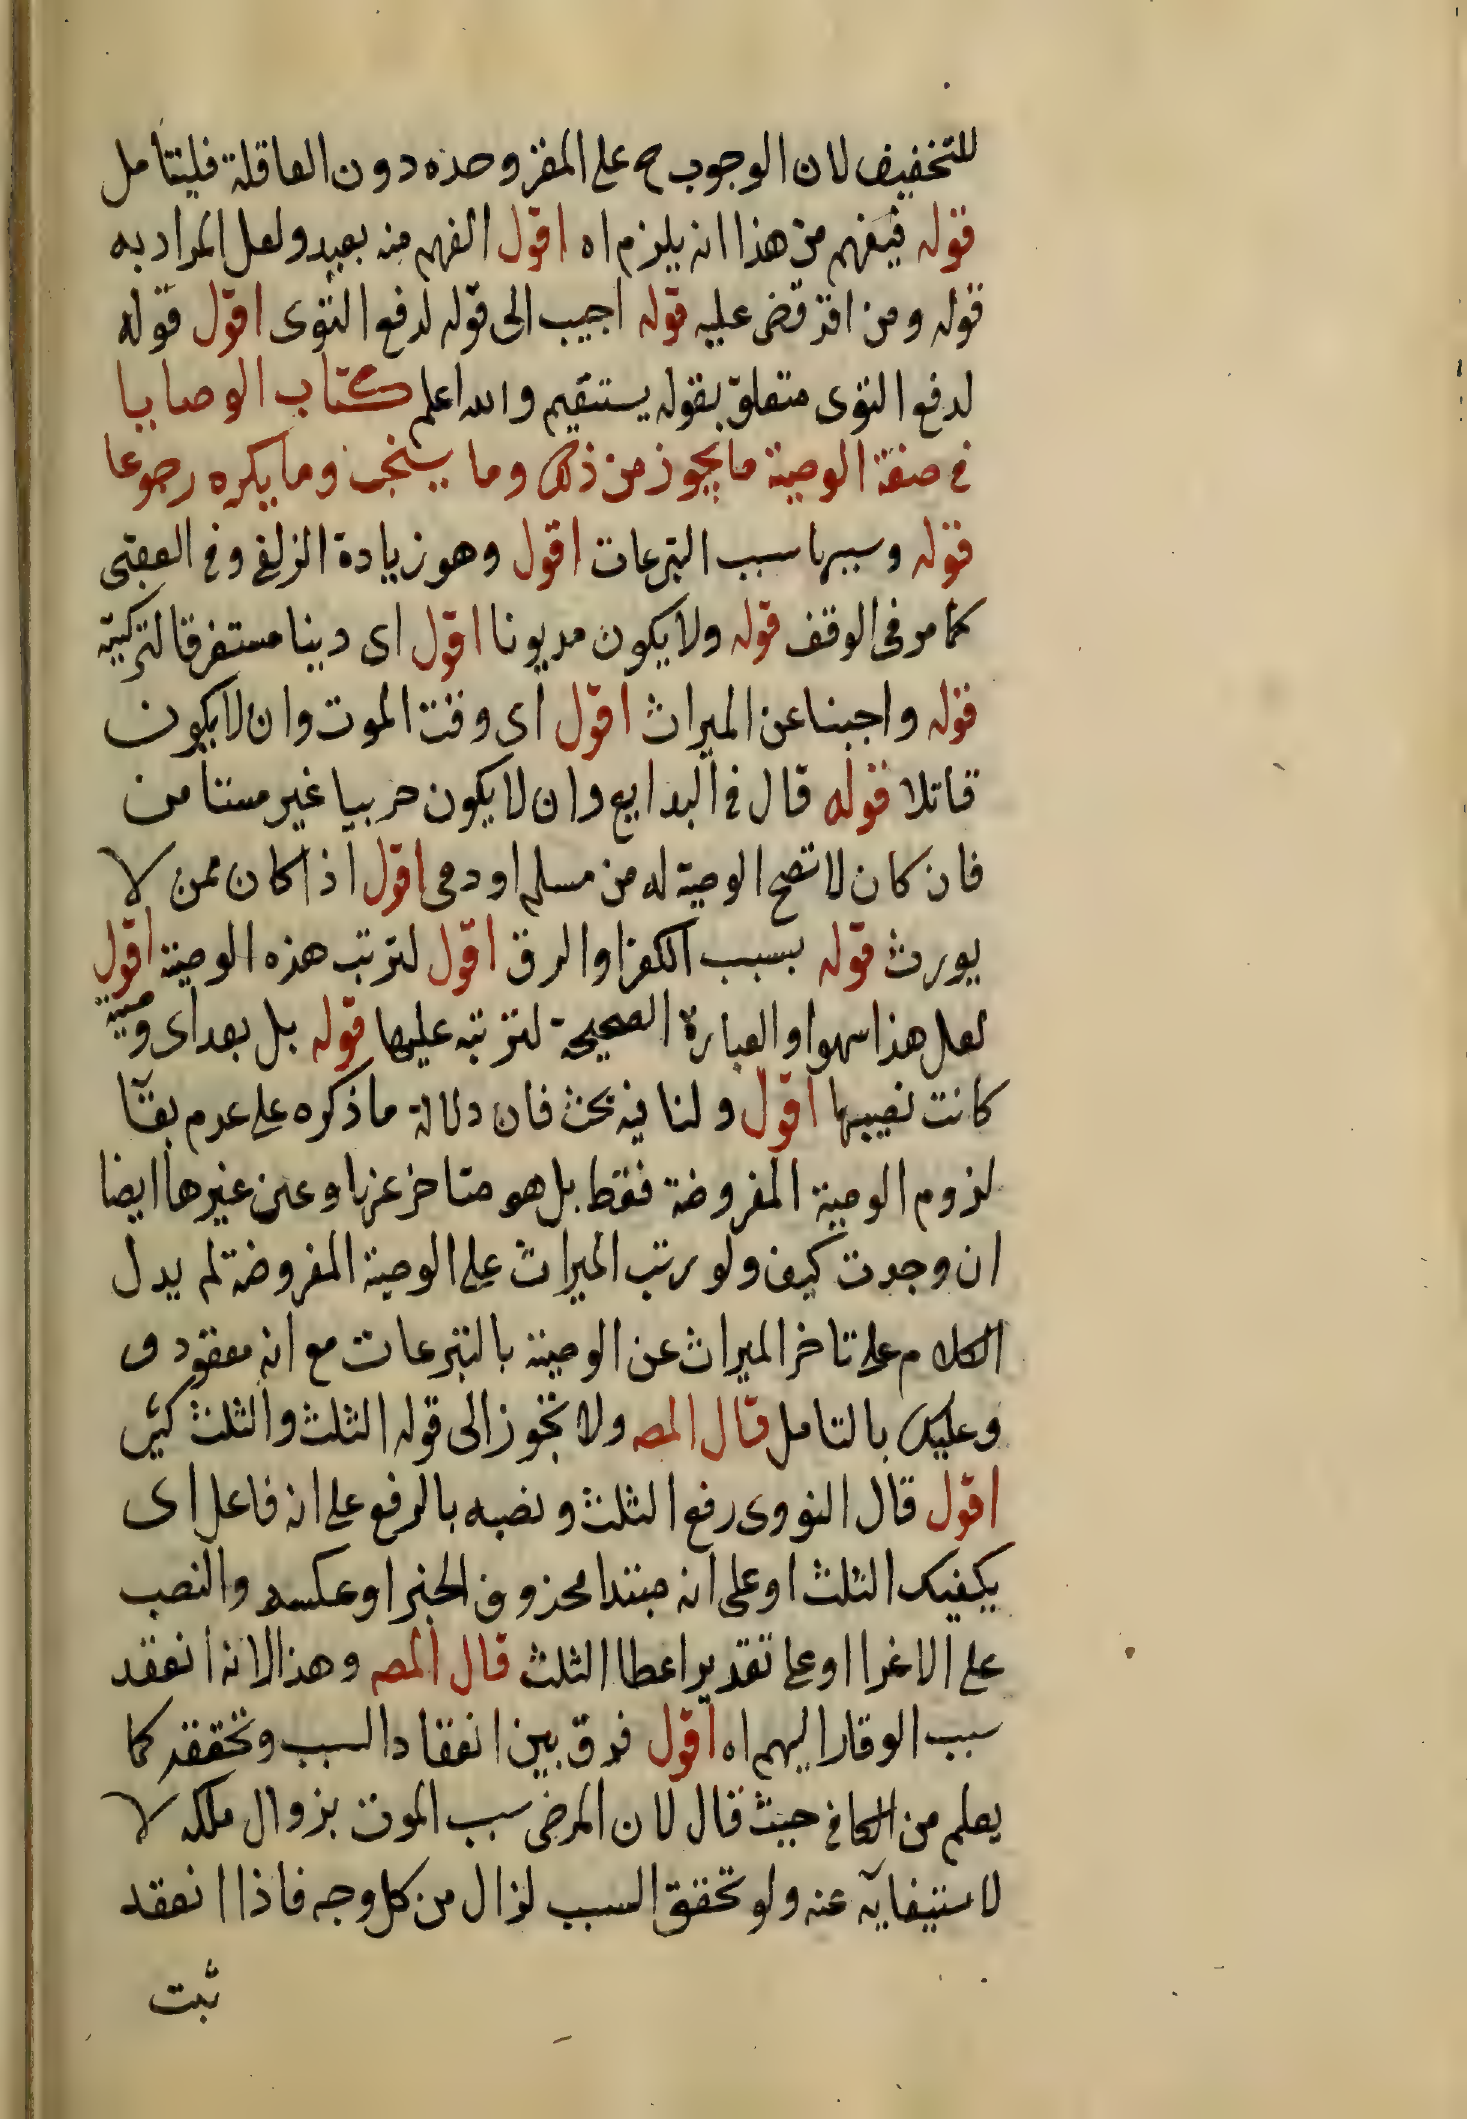 للتخفيف لان الوجوب ح على المقر وحده دون العاقلة فليتامل
قوله فيفهم من هذا انه يلزم اه اقول الفهم منه بعيد ولعل المراد به
قوله ومن اقر قضى عليه قوله اجيب الى قوله لدفع التوى اقول قوله
لدفع التوى متعلق بقوله يستقيم والله اعلم كتاب الوصايا
في صفة الوصية ما يجوز من ذلك وما يستحب وما يكره رجوعا
قوله وسببها سبب التبرعات اقول وهو زيادة الزلفى وفي العقبى
كما مر في الوقف قوله ولا يكون مديونا اقول اى دينا مستغرقا لتركته
قوله واجبنا عن الميراث اقول اى وقت الموت وان لا يكون
قاتلا قوله قال في البدايع وان لا يكون حربيا غير مستامن
فان كان لا تصح الوصية له من مسلم او ذمى اقول اذا كان ممن لا
يورث قوله بسبب الكفر او الرق اقول لترتب هذه الوصية اقول
لعل هذا سهوا والعبارة الصحيحة لترتبه عليها قوله بل بعد اى وصية
كانت نصيبها اقول ولنا فيه بحث فان دلالة ما ذكره على عدم بقآ
لزوم الوصية المفروضة فقط بل هو متاخر عنها وعن غيرها ايضا
ان وجدت كيف ولو رتب الميراث على الوصية المفروضة لم يدل
الكلام على تاخر الميراث عن الوصية بالتبرعات مع انه معقود و
وعليك بالتامل قال المصـ ولا تجوز الى قوله الثلث والثلث كثير
اقول قال النووى رفع الثلث ونصبه بالرفع على انه فاعل اى
يكفيك الثلث او على انه مبتدا محذوف الخبر او عكسه والنصب
على الاغرا او على تقدير اعطا الثلث قال المصـ وهذا لانه انعقد
سبب الوقار اليهم اه اقول فرق بين انعقاد السبب وتحققه كما
يعلم من الكافى حيث قال لان المرض سبب الموت بزوال ملكه لا
لاستيفايه عنه ولو تحقق السبب لزال من كل وجه فاذا انعقد
ثبت